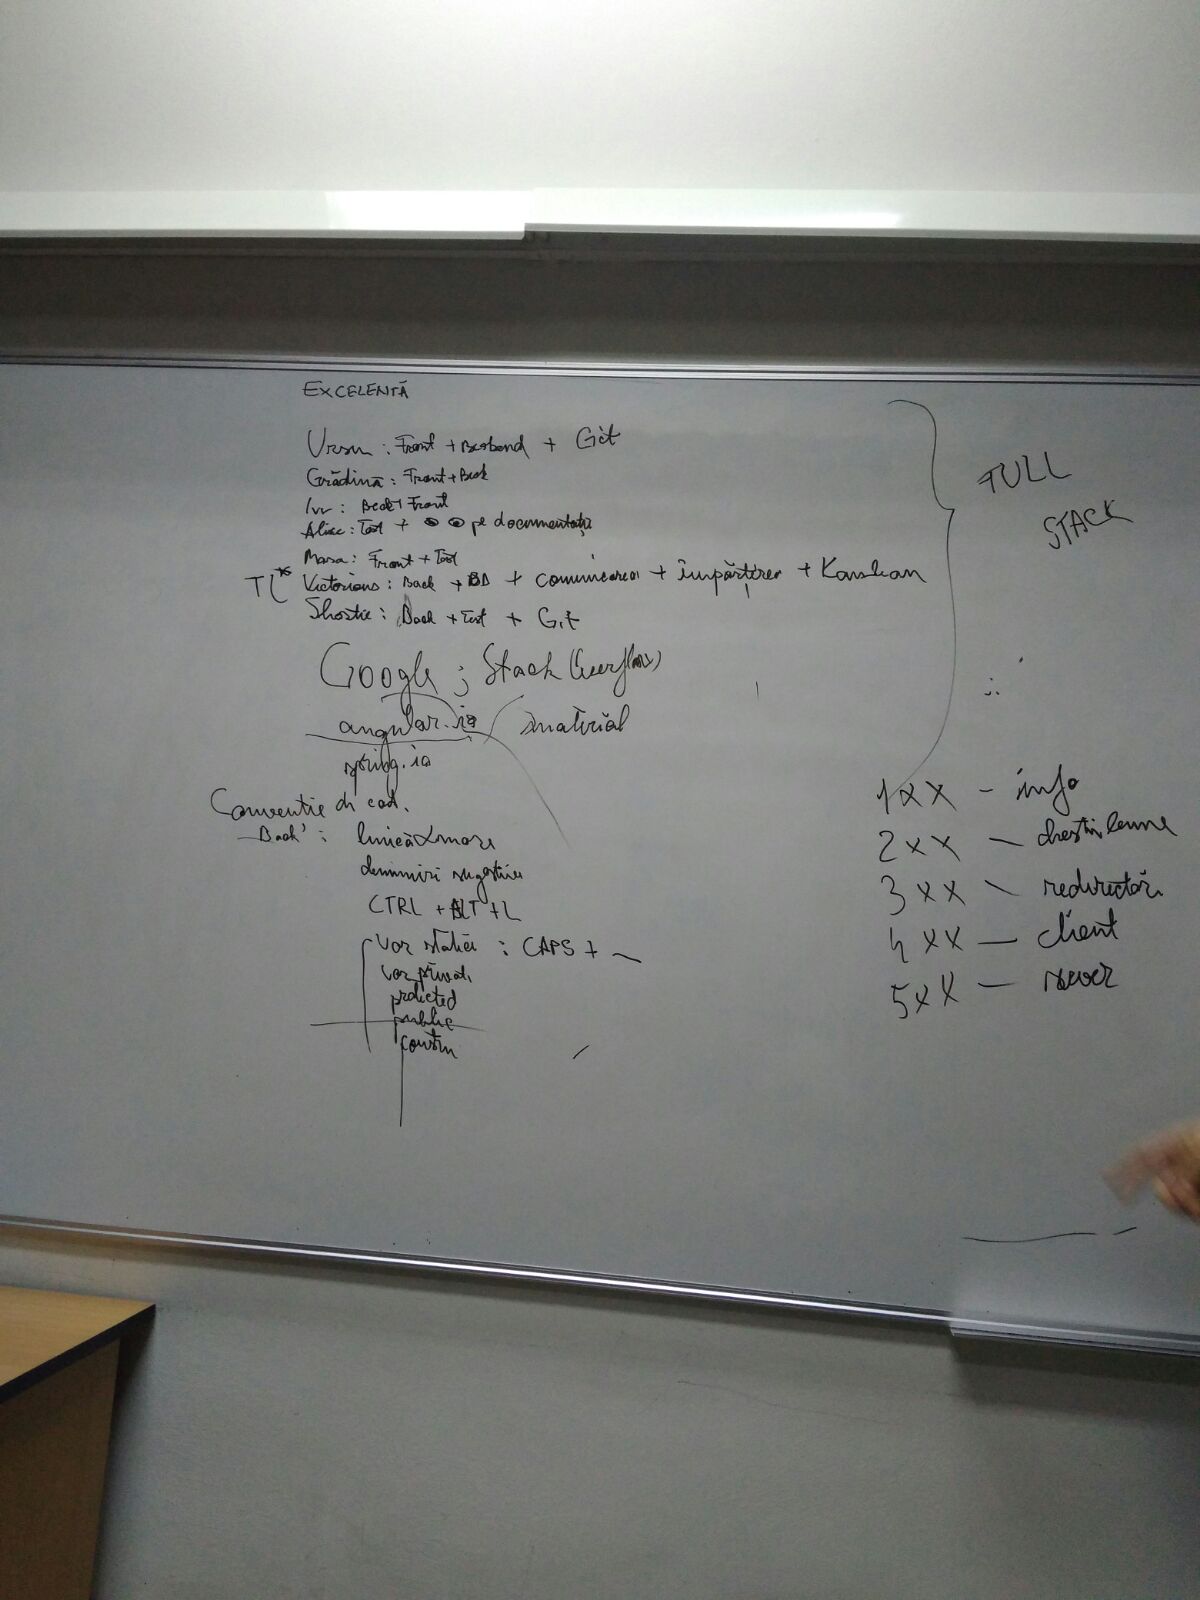 EXCELENȚĂ
Ursu : Front + Backend + Git
Grădină : Front + Back
: Back + Front
Alice : Test + pe documentație
Mara : Front + Test
TL* Victorious : Back + BD + comunicarea + împărțirea + Kanban
: Back + Test + Git
Google ; Stack Overflow
angular.io material
spring.io
Convenție de cod.
Back :
denumiri sugestive
CTRL + ALT + L
var statici : CAPS + _
var private
protected
public
constru
FULL
STACK
1xx - info
2xx -
3xx - redirectări
4xx - client
5xx - server